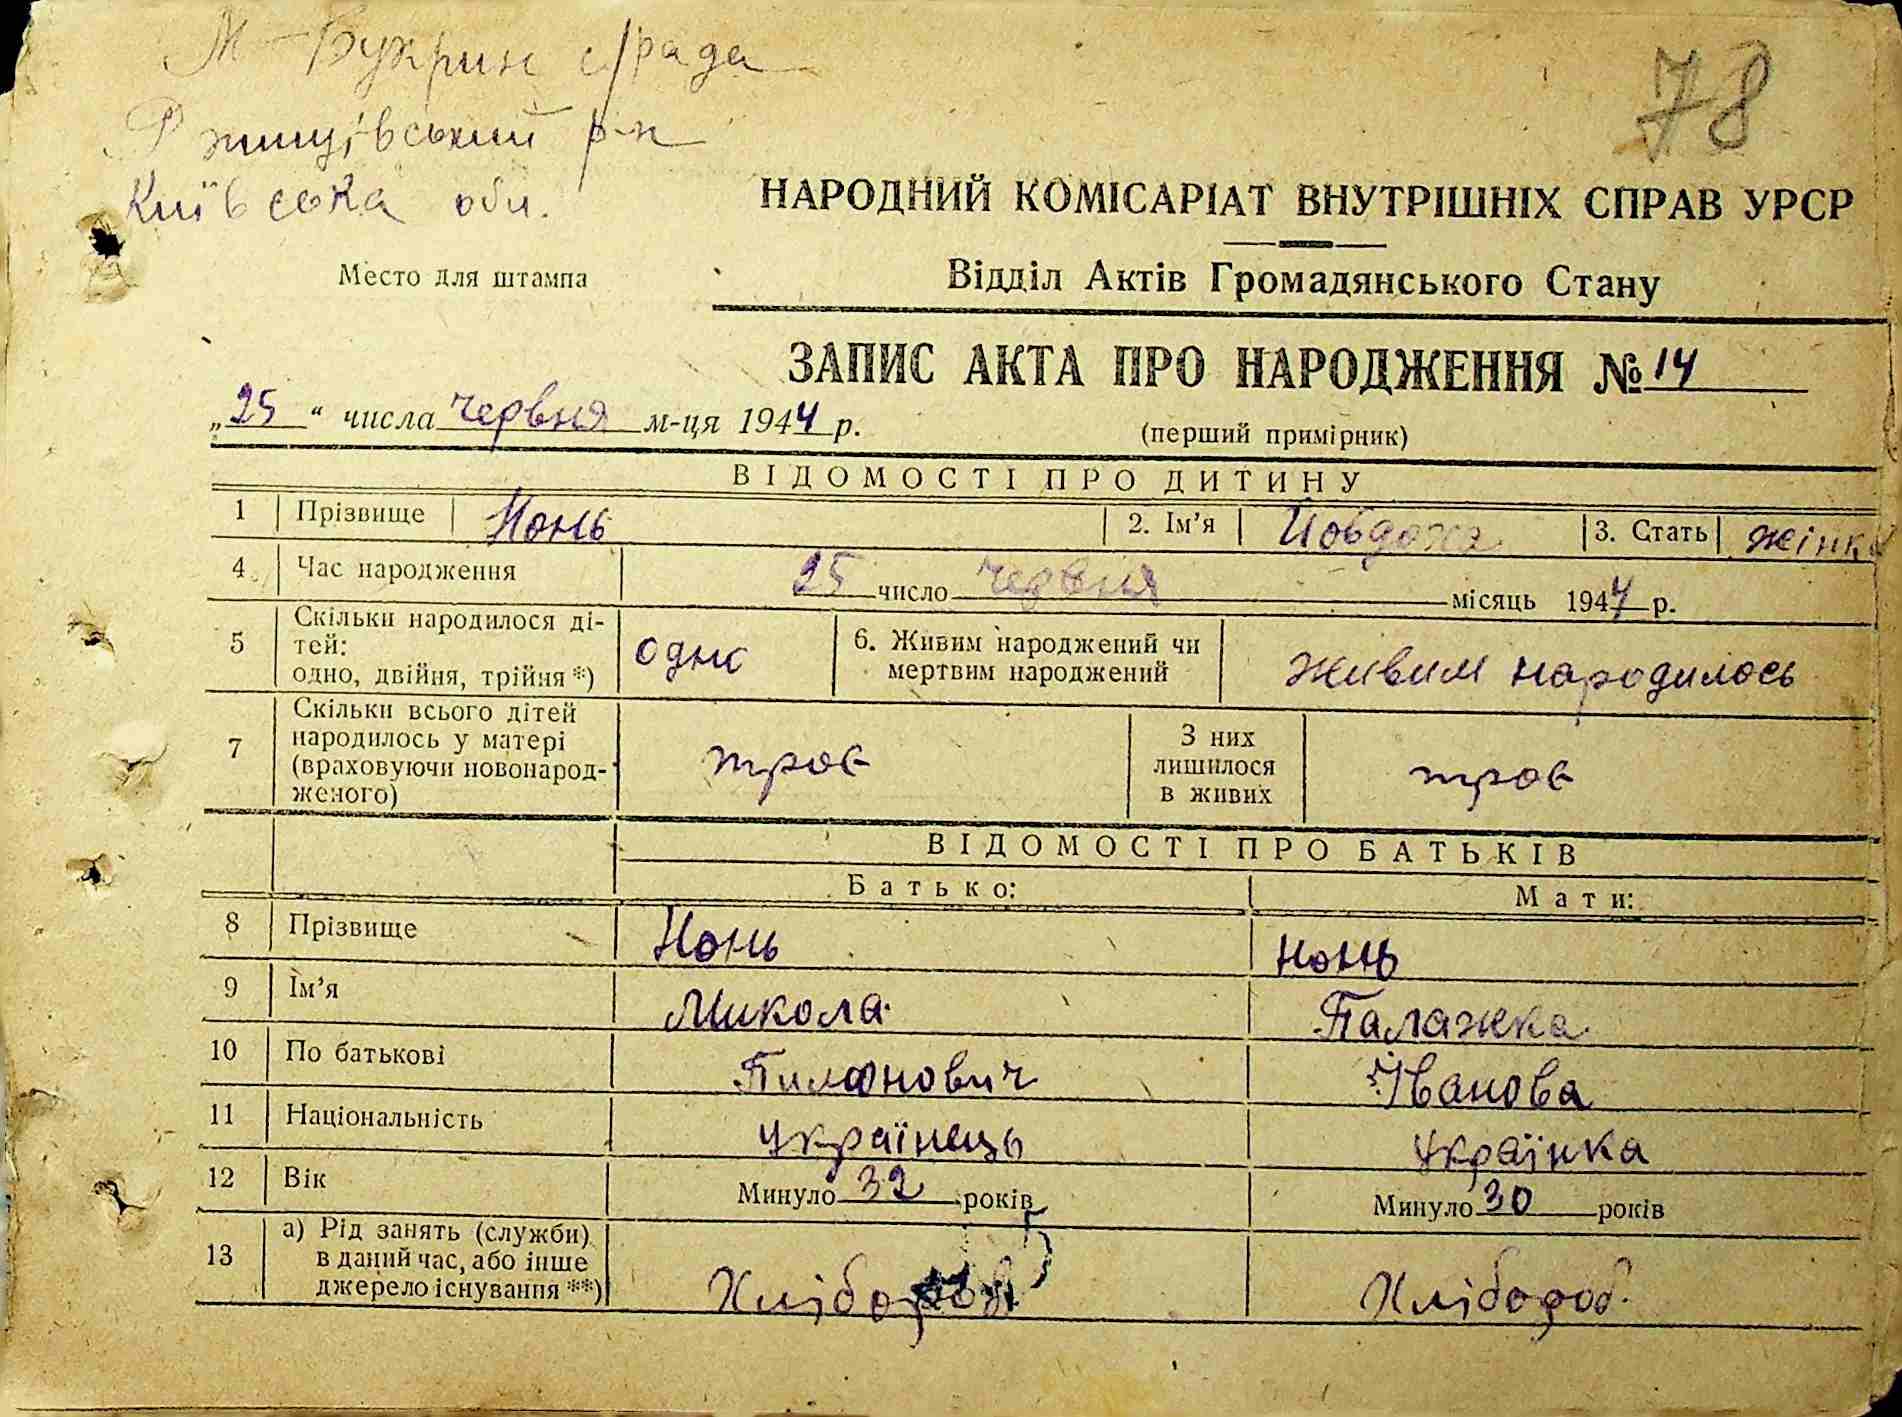 М-Букрин с/рада
Ржищівський р-н
Київська обл.
78
НАРОДНИЙ КОМІСАРІАТ ВНУТРІШНІХ СПРАВ УРСР
Место для штампа
Відділ Актів Громадянського Стану
ЗАПИС АКТА ПРО НАРОДЖЕННЯ № 14
„25“ числа червня м-ця 1944 р.
(перший примірник)
ВІДОМОСТІ ПРО ДИТИНУ
1 Прізвище Нонь 2. Ім'я Йовдоха 3. Стать жінка
4 Час народження 25 число червня місяць 1944 р.
5 Скільки народилося ді-
тей:
одно, двійня, трійня *) одно
6. Живим народжений чи
мертвим народжений живим народилось
7 Скільки всього дітей
народилось у матері
(враховуючи новонарод-
женого) троє
З них
лишилося
в живих троє
ВІДОМОСТІ ПРО БАТЬКІВ
Батько: Мати:
8 Прізвище Нонь Нонь
9 Ім'я Микола Палажка
10 По батькові Пилипович Іванова
11 Національність українець українка
12 Вік Минуло 32 років Минуло 30 років
13 а) Рід занять (служби)
в даний час, або інше
джерело існування **) Хлібороб Хлібороб.